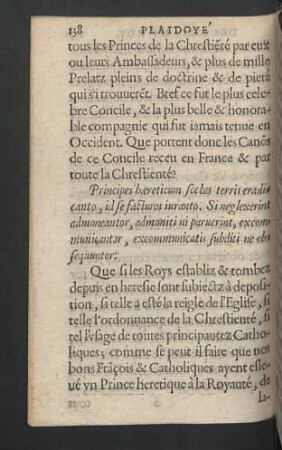 138 PLAIDOYÉ
tous les Princes de la Chrestiẽté par eux
ou leurs Ambassadeurs, & plus de mille
Prelatz pleins de doctrine & de pieté
qui s'i trouuerẽt. Bref ce fut le plus cele-
bre Concile, & la plus belle & honora-
ble compagnie qui fut iamais tenue en
Occident. Que portent donc les Canõs
de ce Concile receu en France & par
toute la Chrestienté?
Principes hereticum scelus terris eradi-
canto, id se facturos iuranto. Si neglexerint
admoneantor, admoniti ni paruerint, excom-
municantor, excommunicatis subditi ne ob-
sequuntor:
Que si les Roys establiz & tombez
depuis en heresie sont subiectz à deposi-
tion, si telle a esté la reigle de l'Eglise, si
telle l'ordonnance de la Chrestienté, si
tel l'vsage de toutes principautez Catho-
liques; comme se peut il faire que nos
bons Frãçois & Catholiques ayent esle-
ué vn Prince heretique à la Royauté, de
la-